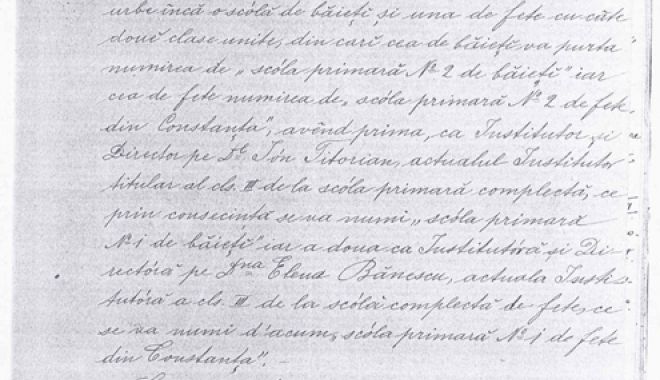 urbe încă o scólă de băieți și una de fete cu câte
doué clase unite, din cari cea de băieți va purta
numirea de „scóla primară No 2 de băieți" iar
cea de fete numirea de „scóla primară No 2 de fete
din Constanța", avênd prima, ca Institutor și
Director pe Dl. Ion Titorian, actualul Institutor
titular al cls. III de la scóla primară complectă, ce
prin consecință se va numi „scóla primară
No 1 de băieți" iar a doua ca Institutóră și Di-
rectóră pe Dna Elena Bănescu, actuala Insti-
tutóră a cls. III de la scólă complectă de fete, ce
se va numi d'acum, scóla primară No 1 de fete
din Constanța". -